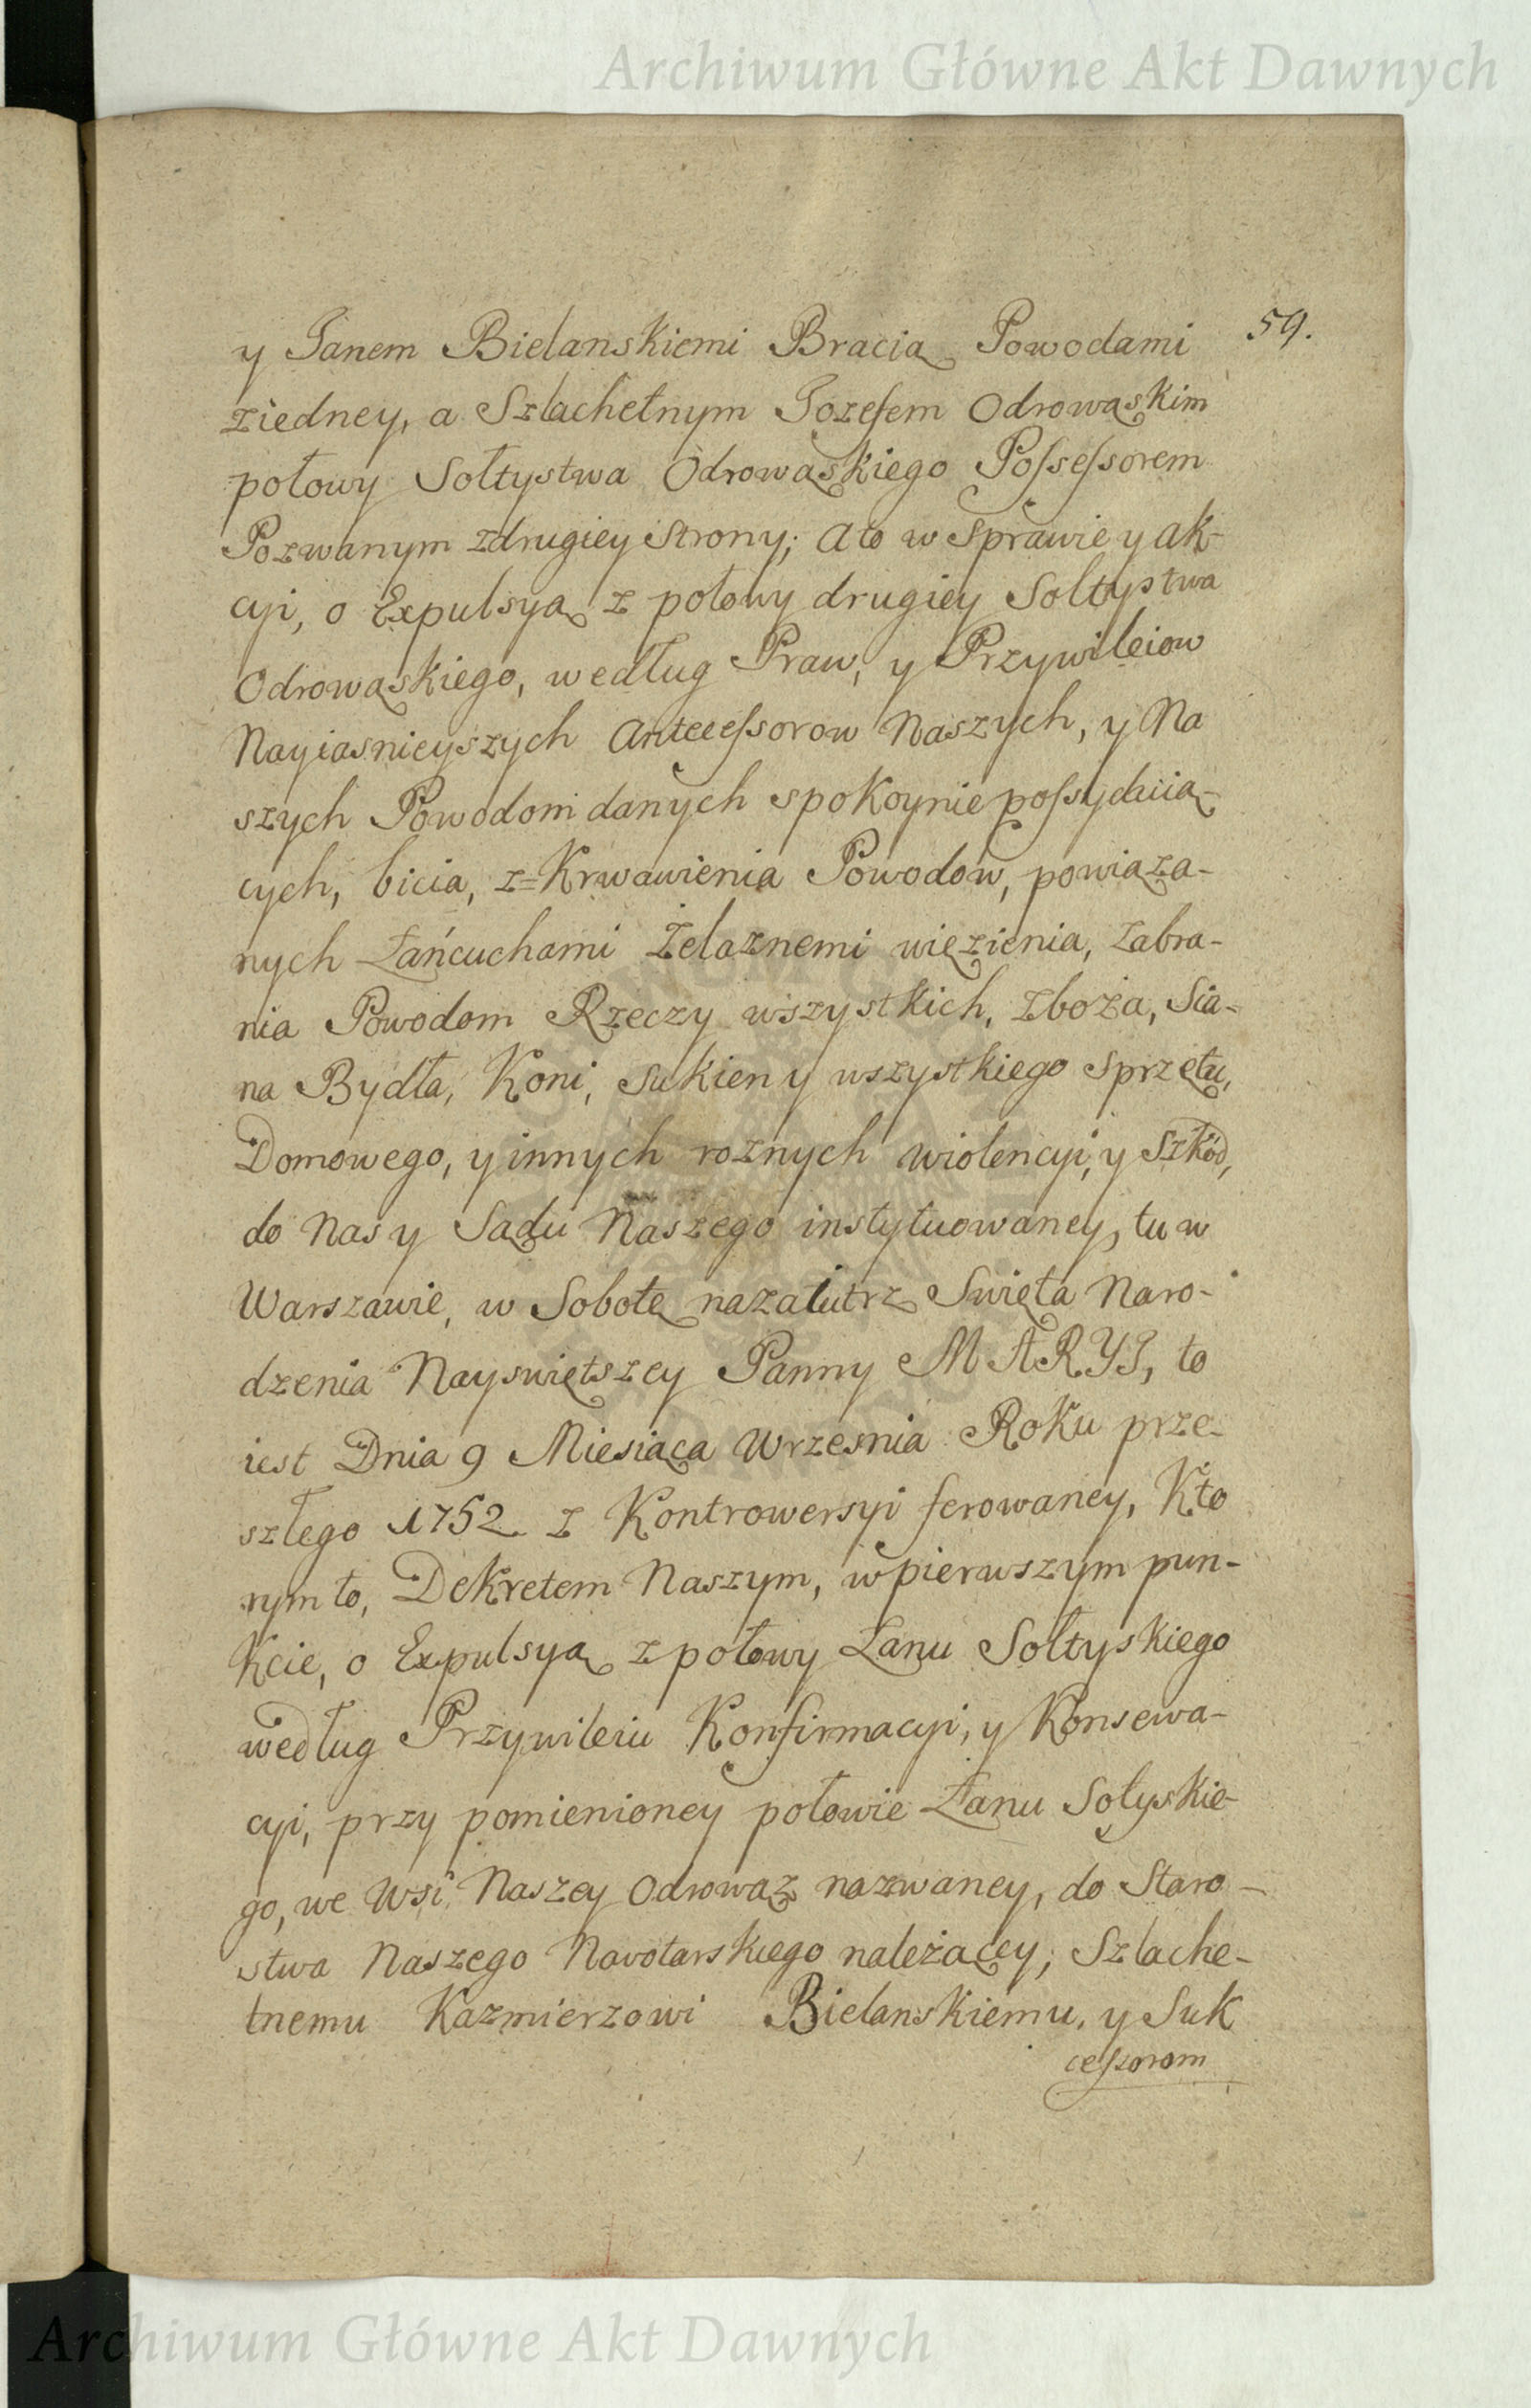 Archiwum Główne Akt Dawnych
59.
y Janem Bielanskiemi Bracią Powodami
ziedney, a Szlachetnym Jozefem Odrowąskim
połowy Sołtystwa Odrowąskiego Possessorem
Pozwanym zdrugiey Strony; Ato w Sprawie y Ak-
cyi, o Expulsyą z połowy drugiey Sołtystwa
Odrowąskiego, według Praw, y Przywileiow
Nayiasnieyszych Antecessorow Naszych, y Na
szych Powodom danych spokoynie possyduią-
cych, bicia, z=Krwawienia Powodow, powiąza-
nych Łańcuchami Żelaznemi więzienia, Zabra-
nia Powodom Rzeczy wszystkich, Zboża, Sia-
na Bydła, Koni, Sukien y wszystkiego Sprzętu,
Domowego, y innych roznych wiolencyi, y Szkód,
do Nas y Sądu Naszego instytuowaney, tu w
Warszawie, w Sobotę nazaiutrz Swięta Naro-
dzenia Nayswiętszey Panny MARYI, to
iest Dnia 9 Miesiąca Wrzesnia Roku prze-
szłego 1752 z Kontrowersyi ferowaney, Kto
rym to, Dekretem Naszym, w pierwszym pun-
Kcie, o Expulsyą z połowy Łanu Sołtyskiego
według Przywileiu Konfirmacyi, y Konsewa-
cyi, przy pomienioney połowie Łanu Sołyskie-
go, we Wsi Naszey Odrowąz nazwaney, do Staro-
stwa Naszego Nowotarskiego należącey; Szlache-
tnemu Kazmierzowi Bielanskiemu, y Suk
cessorom
Archiwum Główne Akt Dawnych